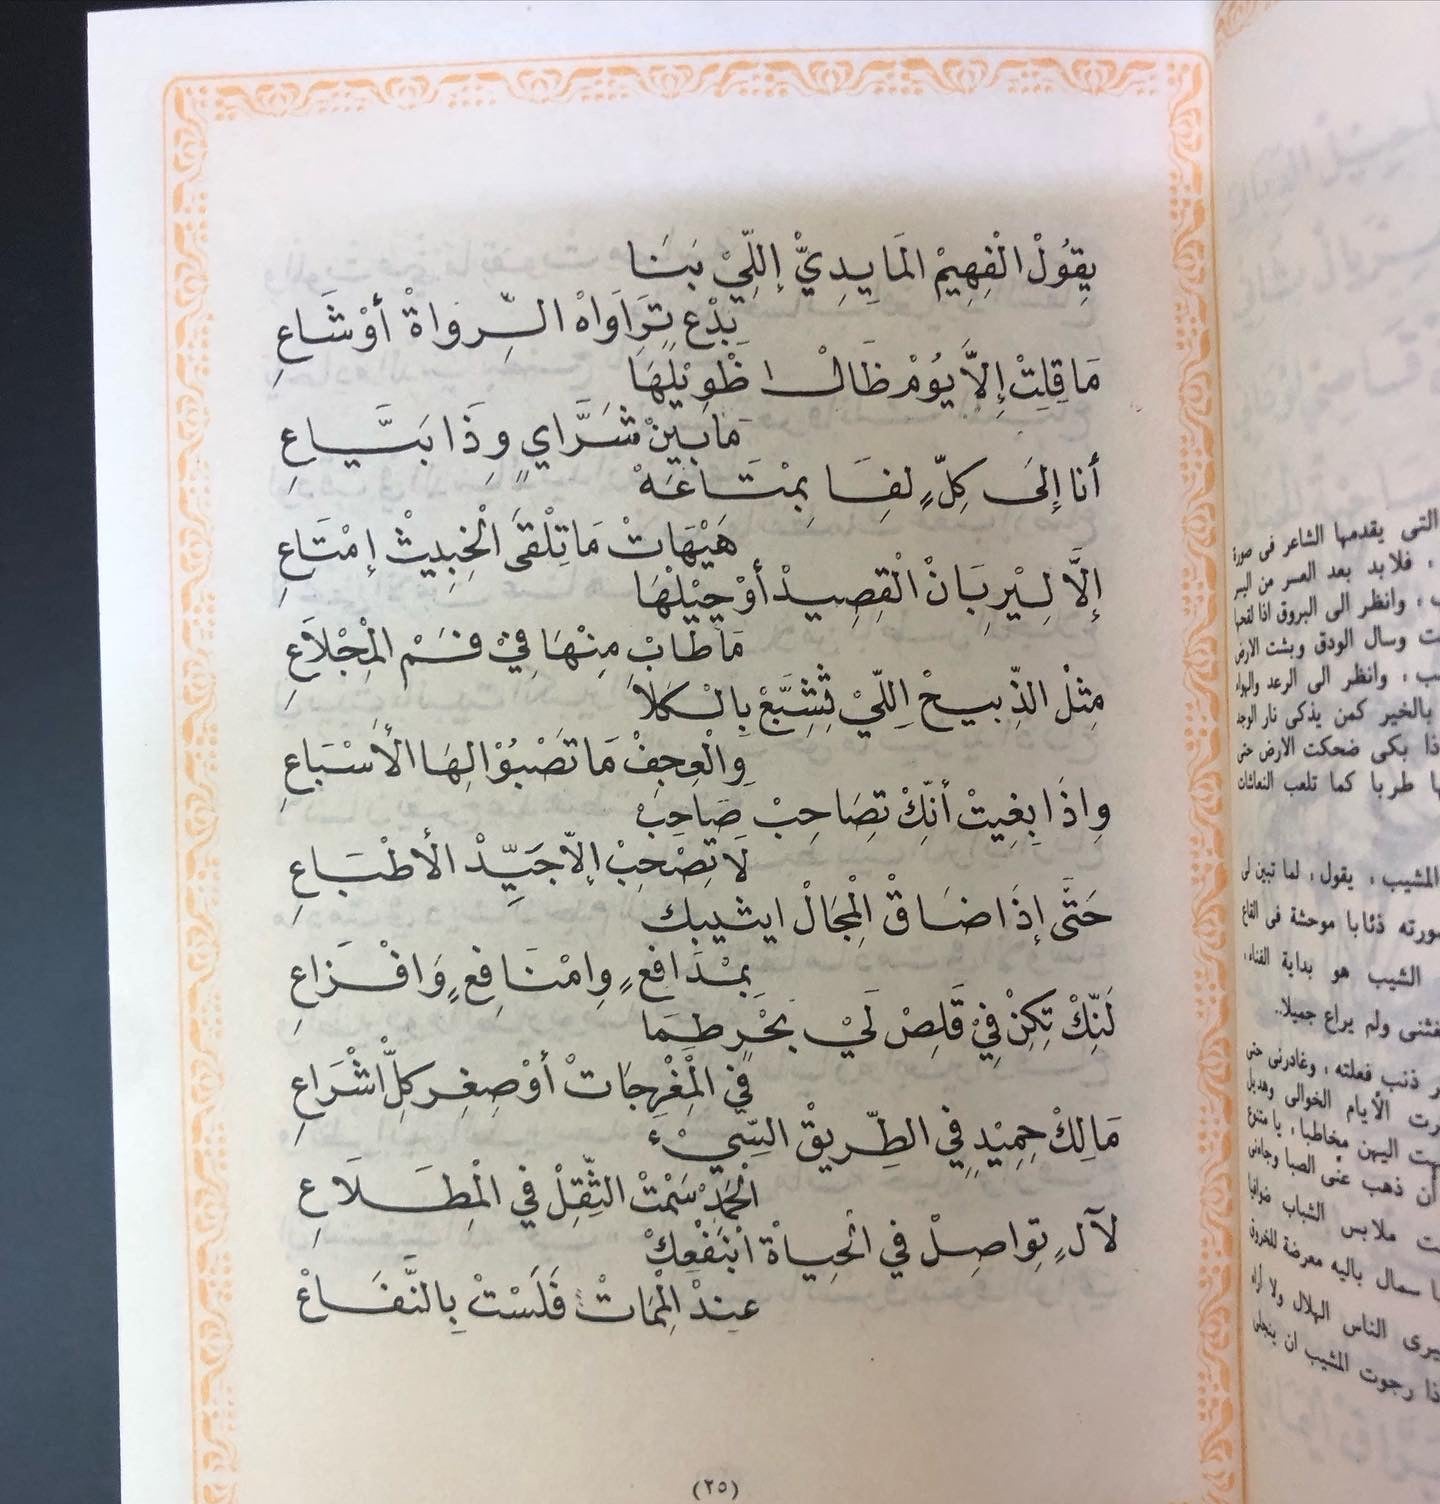 يِقِوُلْ الْفِهِيمْ المَايِدِيّْ إللِّيْ بَنَا
بِدْعٍ تِرَاوَاهْ الـرِّواةْ أوْشَاعِ
مَا قِلِتْ إلاَّ يُوْمْ ظَالْ ظْوِيْلِهَا
مَابَيْنْ شَرَّايٍ وِذَا بَيَّاعِ
أنا إلَى كِلٍّ لِفَا بِمْتَاعَهْ
هَيْهَاتْ مَا تِلْقَى الْخِبِيثْ إمْتَاعِ
إلاَّ لِيْرِبَانْ الْقِصِيدْ أوْجِيْلِهَا
مَاطَابْ مِنْهَا فِيْ فَمْ الْمِجْلاَعِ
مِثْلْ الذِّبِيحْ اِللّيْ تِشَبَّعْ بِالْكَلاَ
وِالْعِجِفْ مَا تَصْبُوْ الِهَا الأَسْبَاعِ
وِاذَا بِغِيتْ أنِّكْ تِصَاحِبْ صَاحِبْ
لَا تِصْحِبْ إلاّ جَيِّدْ الْأَطْبَاعِ
حَتَّى إذَا ضَاقْ الْمِجَالْ ايثيبك
بِمْدَافعٍ وِامْنَافِعٍ وَافْزَاعِ
لَنِّكْ تِكِنْ فِيْ قَلِصْ لَيْ بَحْرٍ طِمَا
فِي الْمِغْرِجَاتْ أوْصِغِر كِلّْ اشْرَاعِ
مَالِكْ حِمِيدٍ فِي الطِّرِيقْ السِّيْءِ
الْحَمِدْ سَمْتْ الثِّقِلْ في الْمِطْلَاعِ
لآلٍ تِواصِلْ في الْحِياةْ ابْنَفْعِكْ
عِندْ الْمِمَاتْ فَلَسْتْ بِالنَّفَاعْ
(٢٥)
التى يقدمها الشاعر فى صورة
، فلابد بعد العسر من اليسر
، وانظر الى البروق اذا لقحها
ت وسال الودق وبشت الارض
، وانظر الى الرعد والهواء
بالخير كمن يذكى نار الوجد
ذا بكى ضحكت الارض حتى
ها طربا كما تلعب النعاثات
المشيب ، يقول ، لما تبين لى
صورته ذئابا موحشة فى القاع
الشيب هو بداية الفناء ،
ولم يراع جميلا..
ذنب فعلته ، وغادرنى حتى
الأيام الخوالى وهديل
اليهن مخاطبا ، يا متنوع
أن ذهب عنى الصبا وجاءنى
ملابس الشباب ضوافيا
سمال باليه معرضة للخروق
يرى الناس الهلال ولا أراه
ذا رجوت المشيب ان ينجلى